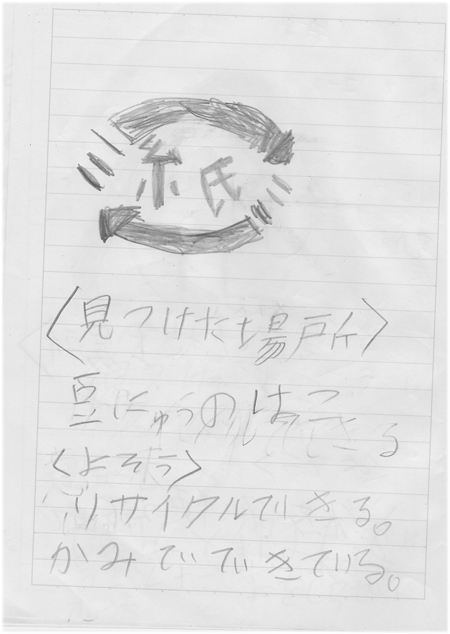 紙
〈見つけた場所〉
豆にゅうのはこ
〈よそう〉
リサイクルできる。
かみでできている。